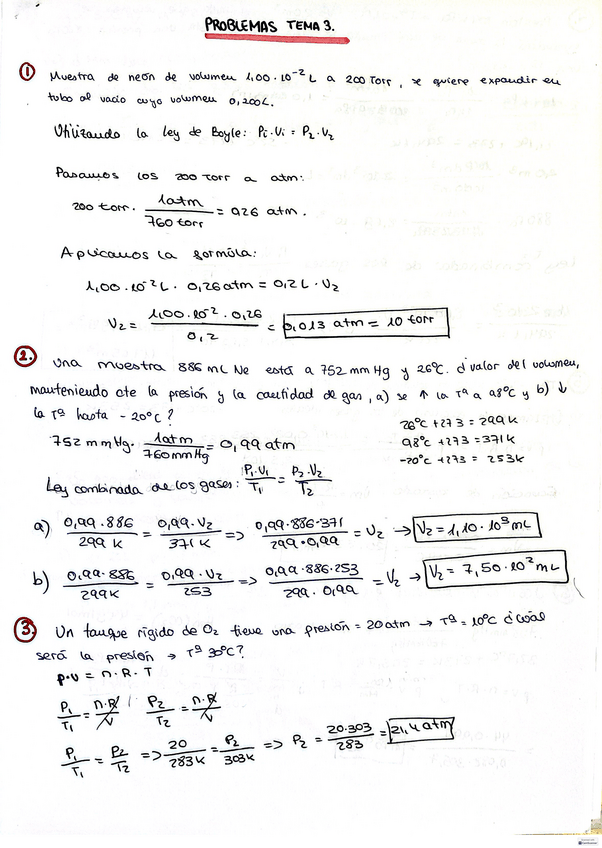 PROBLEMAS TEMA 3.
① Muestra de neón de volumen 1,00·10⁻² L a 200 Torr, se quiere expandir en
tubo al vacío cuyo volumen 0,200L.
Utilizando la Ley de Boyle: Pi·Vi = P₂·V₂
Pasamos los 200 Torr a atm:
200 torr · 1atm / 760 torr = 026 atm.
Aplicamos la formula:
1,00·10⁻² L · 0,26 atm = 0,2 L · V₂
V₂ = 1,00·10⁻² · 0,26 / 0,2 = 0,013 atm = 10 torr
2. Una muestra 886 mL Ne está a 752 mm Hg y 26°C. ¿valor del volumen,
manteniendo cte la presión y la cantidad de gas, a) se ↑ la Tª a 98°C y b) ↓
la Tª hasta -20°C?
26°C +273 = 299 K
98°C +273 = 371 K
-20°C +273 = 253 K
752 mm Hg · 1atm / 760 mm Hg = 0,99 atm
Ley combinada de los gases: P₁·V₁ / T₁ = P₂·V₂ / T₂
a) 0,99·886 / 299 K = 0,99·V₂ / 371 K => 0,99·886·371 / 299·0,99 = V₂ → V₂ = 1,10·10³ mL
b) 0,99·886 / 299K = 0,99·V₂ / 253 => 0,99·886·253 / 299·0,99 = V₂ → V₂ = 7,50·10² mL
3. Un tanque rígido de O₂ tiene una presión = 20 atm → Tª = 10°C ¿Cuál
será la presión → Tª 30°C?
P·V = n·R·T
P₁ / T₁ = n·R / V P₂ / T₂ = n·R / V
P₁ / T₁ = P₂ / T₂ => 20 / 283K = P₂ / 303K => P₂ = 20·303 / 283 = 21,4 atm